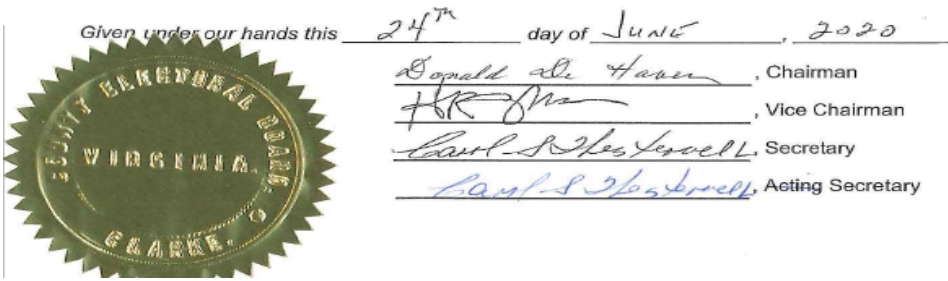 Given under our hands this 24th day of June, 2020
Donald De Haven, Chairman
, Vice Chairman
Carol S, Secretary
Carol S, Acting Secretary
COUNTY ELECTORAL BOARD
VIRGINIA.
CLARKE.